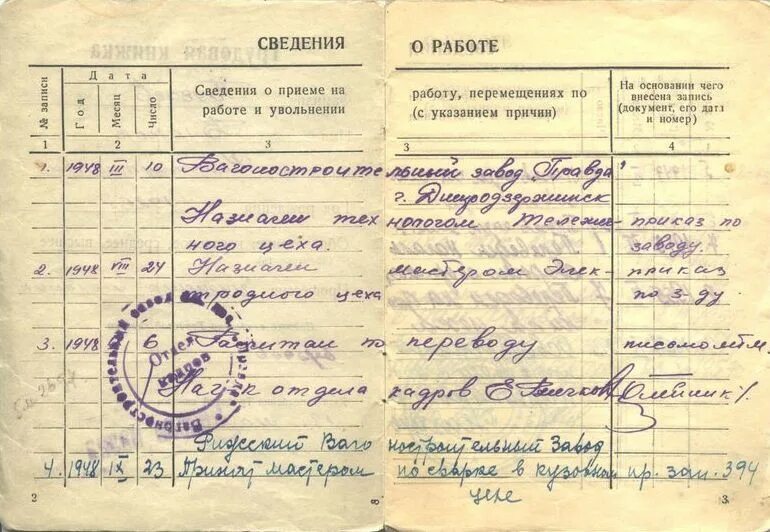 СВЕДЕНИЯ О РАБОТЕ
№ записи
Дата
Год
Месяц
Число
Сведения о приеме на работу, перемещениях по
работе и увольнении (с указанием причин)
На основании чего
внесена запись
(документ, его дата
и номер)
1 2 3 3 4
1. 1948 III 10 Вагоностроительный завод "Правда"
г. Днепродзержинск
Назначен технологом тележеч- приказ по
ного цеха. заводу.
2. 1948 VIII 24 Назначен мастером Элек- приказ
тродного цеха по з-ду.
3. 1948 6 по переводу
Нач-к отдела кадров
Вагоностроительный завод
Отдел
кадров
Вагоностроительный Завод
4. 1948 IX 23 Принят мастером по сварке в кузовном пр. зап. 394
цехе
2
8
3